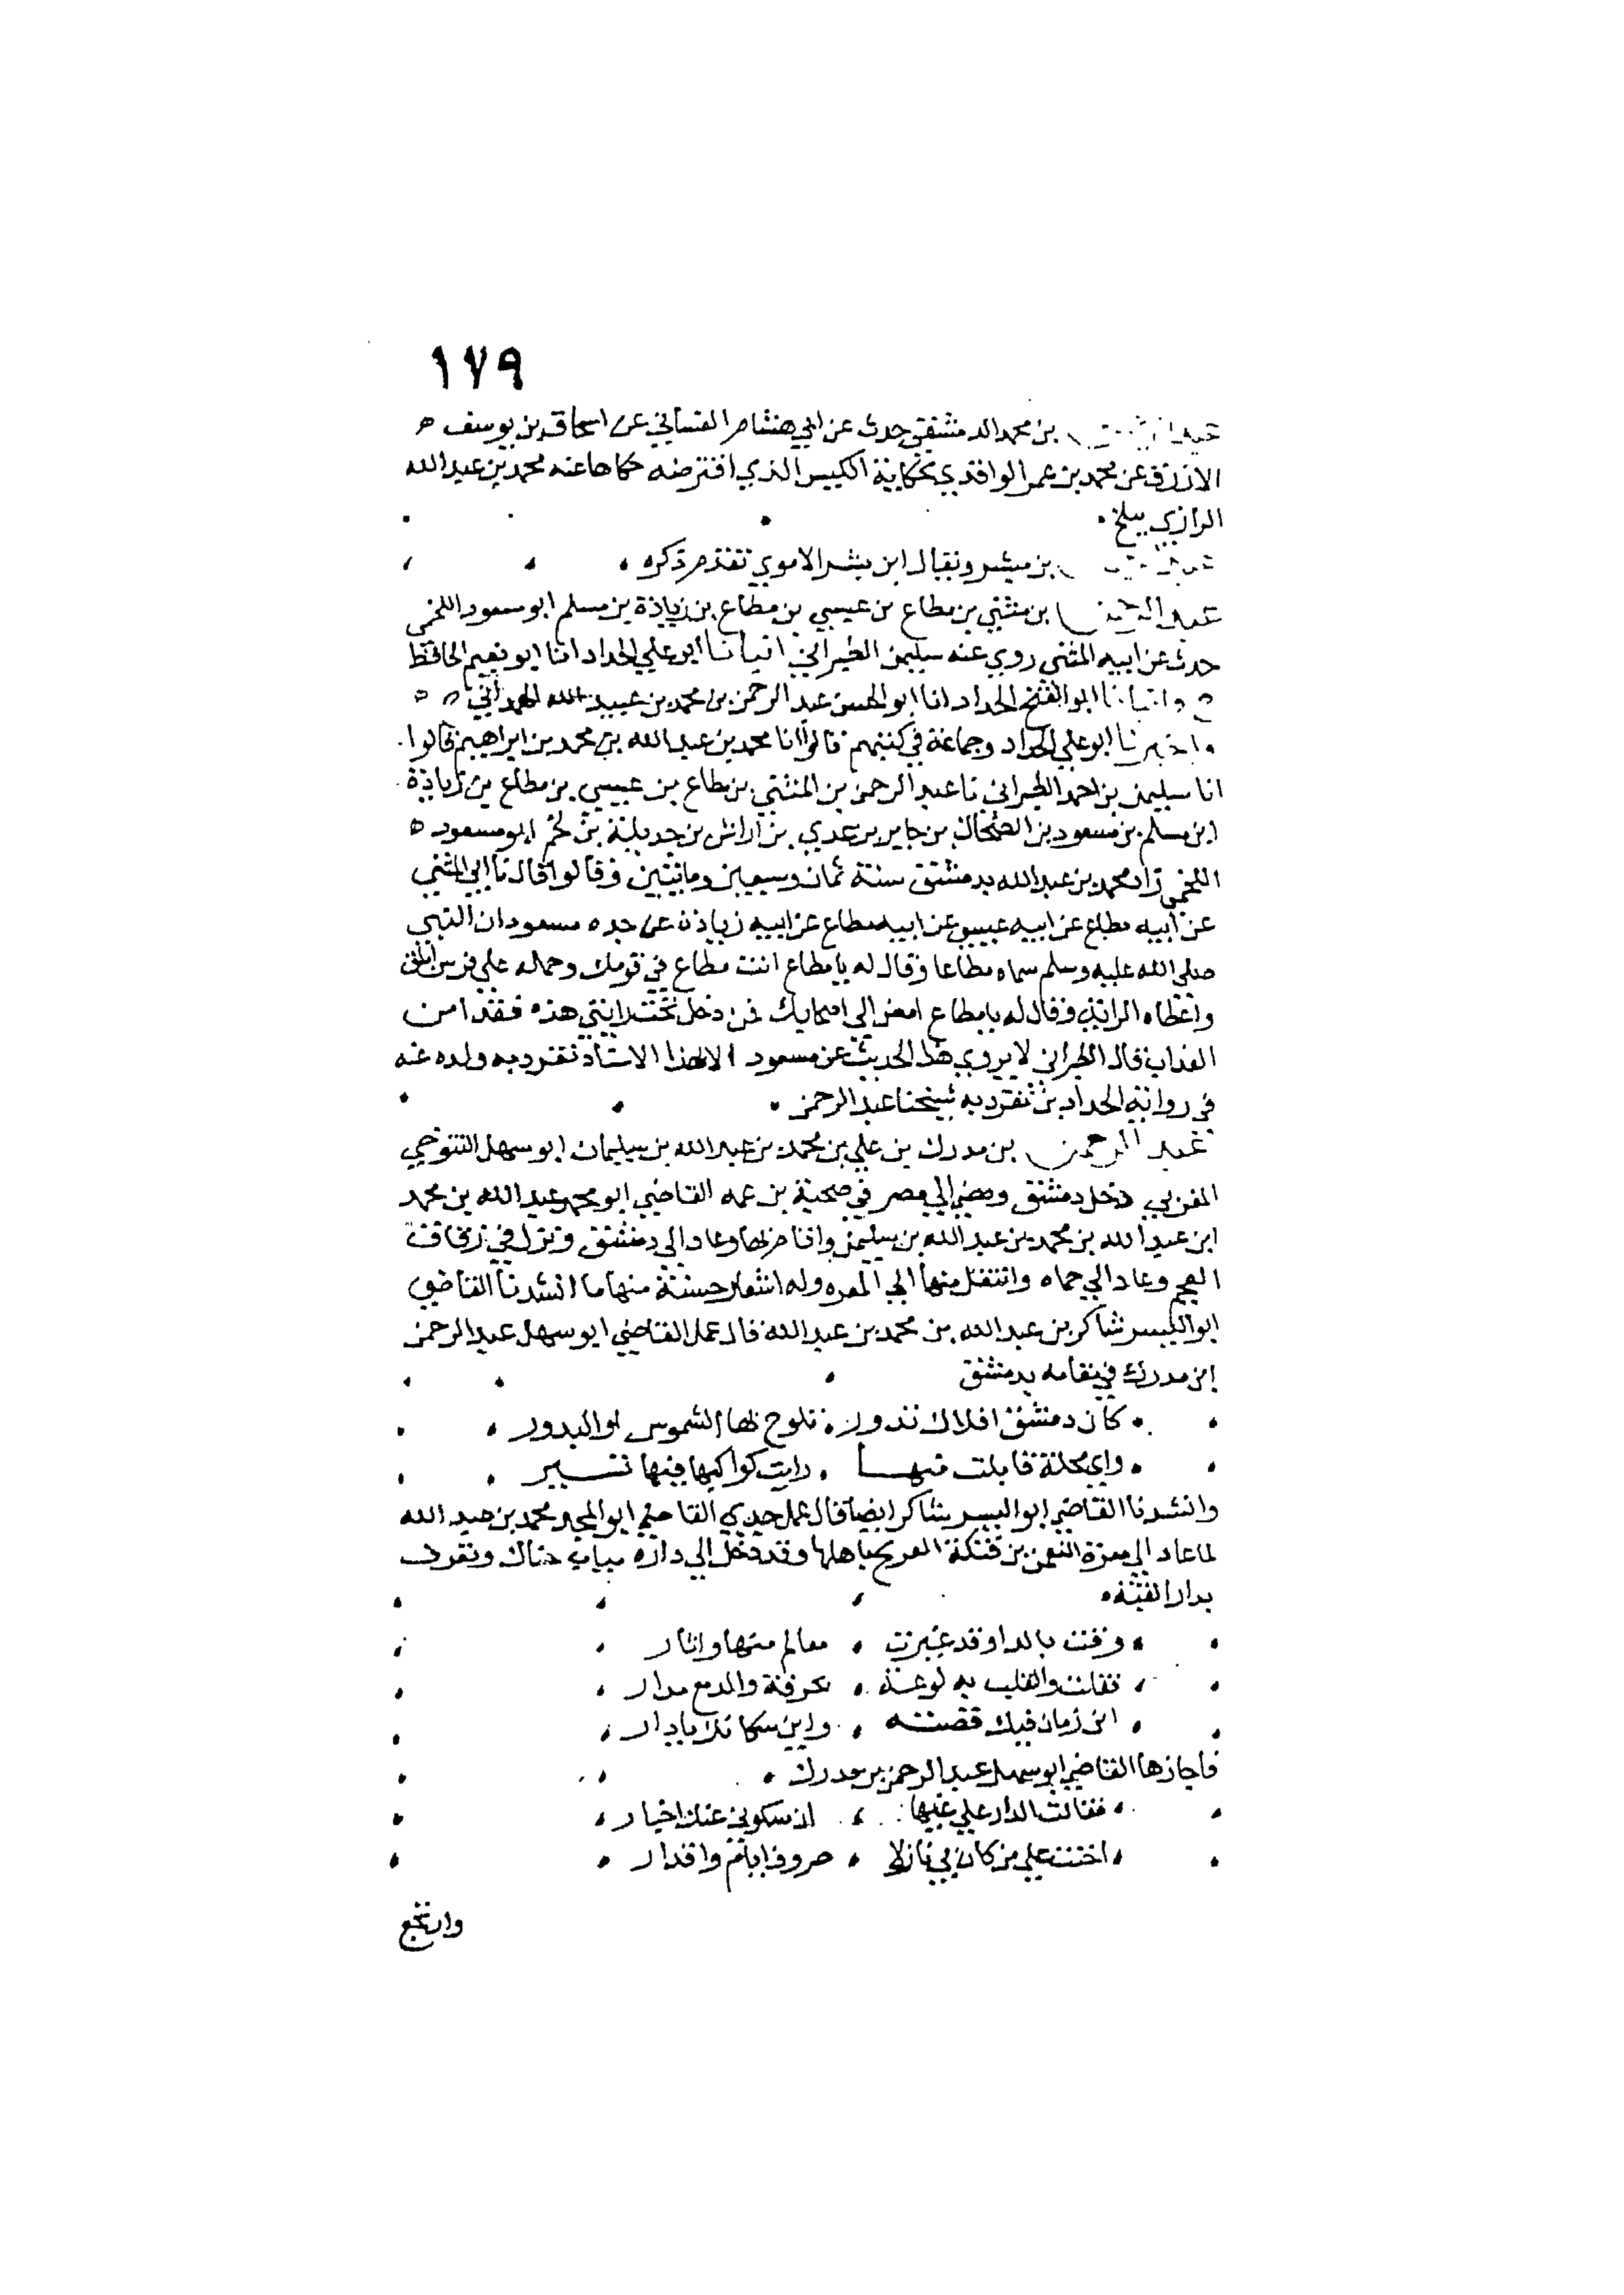 ١٧٩
بن محمد الدمشقي حدث عن ابي هشام الغساني عن اسحاق بن يوسف ه
الازرق عن محمد بن عمر الواقدي بحكاية الكيس الذي اقترضه حكاها عنه محمد بن عبد الله
الرازي ببلخ
بن مبشر ويقال ابن بشر الاموي تقدم ذكره
عبد الرحمن بن مثني بن مطاع بن عيسي بن مطاع بن زياذة بن مسلم ابو مسعود اللخمي
حدث عن ابيه المثنى روي عنه سليمن الطبراني انبانا ابو علي الحداد انا ابو نعيم الحافظ
ح وانبانا ابو الفتح الحداد انا ابو الحسن عبد الرحمن بن محمد بن عبيد الله الهمداني ه ه
واخبرنا ابو علي الحداد وجماعة في كتبهم قالوا انا محمد بن عبد الله بن محمد بن ابراهيم قالوا
انا سليمن بن احمد الطبراني نا عبد الرحمن بن المثني بن مطاع بن عيسي بن مطاع بن زياذة
ابن مسلم بن مسعود بن الضحاك بن جابر بن عدي بن اراش بن جديلة بن لخم ابو مسعود ه
اللخمي زاد محمد بن عبد الله بدمشق سنة ثمان وسبعين ومايتين وقالوا قال نا ابي المثني
عن ابيه مطاع عن ابيه عيسي عن ابيه مطاع عن ابيه زياذة عن جده مسعود ان النبي
صلي الله عليه وسلم سماه مطاعا وقال له يا مطاع انت مطاع في قومك وحمله علي فرس ابلق
واعطاه الراية وقال له يا مطاع امض الي اصحابك فمن دخل تحت رايتي هذه فقد امن
العذاب قال الطبراني لا يروي هذا الحديث عن مسعود الا بهذا الاسناد تفرد به ولده عنه
في رواية الحداد بن تفرد به شيخنا عبد الرحمن
عبد الرحمن بن مدرك بن علي بن محمد بن عبد الله بن سليمان ابو سهل التنوخي
المعري دخل دمشق ومضي الي مصر في صحبة بن عمه القاضي ابو محمد عبد الله بن محمد
ابن عبد الله بن محمد بن عبد الله بن سليمن واقام بها وعاد الي دمشق ونزل في زقاق
العجم وعاد الي حماه وانتقل منها الي المعره وله اشعار حسنة منها ما انشدنا القاضي
ابو اليسر شاكر بن عبد الله بن محمد بن عبد الله قال عمل القاضي ابو سهل عبد الرحمن
ابن مدرك في مقامه بدمشق
كان دمشق افلاك تدور تلوح بها الشموس او البدور
واي محلة قابلت منها رايت كواكبها فيها تسير
وانشدنا القاضي ابو اليسر شاكر ايضا قال عمل جدي القاضي ابو المجد محمد بن عبد الله
لما عاد الي معرة النعمن بن فتكة الفرنج باهلها وقد دخل الي داره بباب حناك وتعرف
بدار القبة
وقفت بالدار وقد غيرت معالم منها واثار
فقلت والقلب به لوعة بحرقة والدمع مدرار
اين زمان فيك قضيته واين سكانك يا دار
فاجازها القاضي ابو سهل عبد الرحمن بن مدرك
فقالت الدار علي عيها ان سكوتي عنك اخبار
اخنت علي من كان بي نازلا صروف ايام واقدار
وارتجع